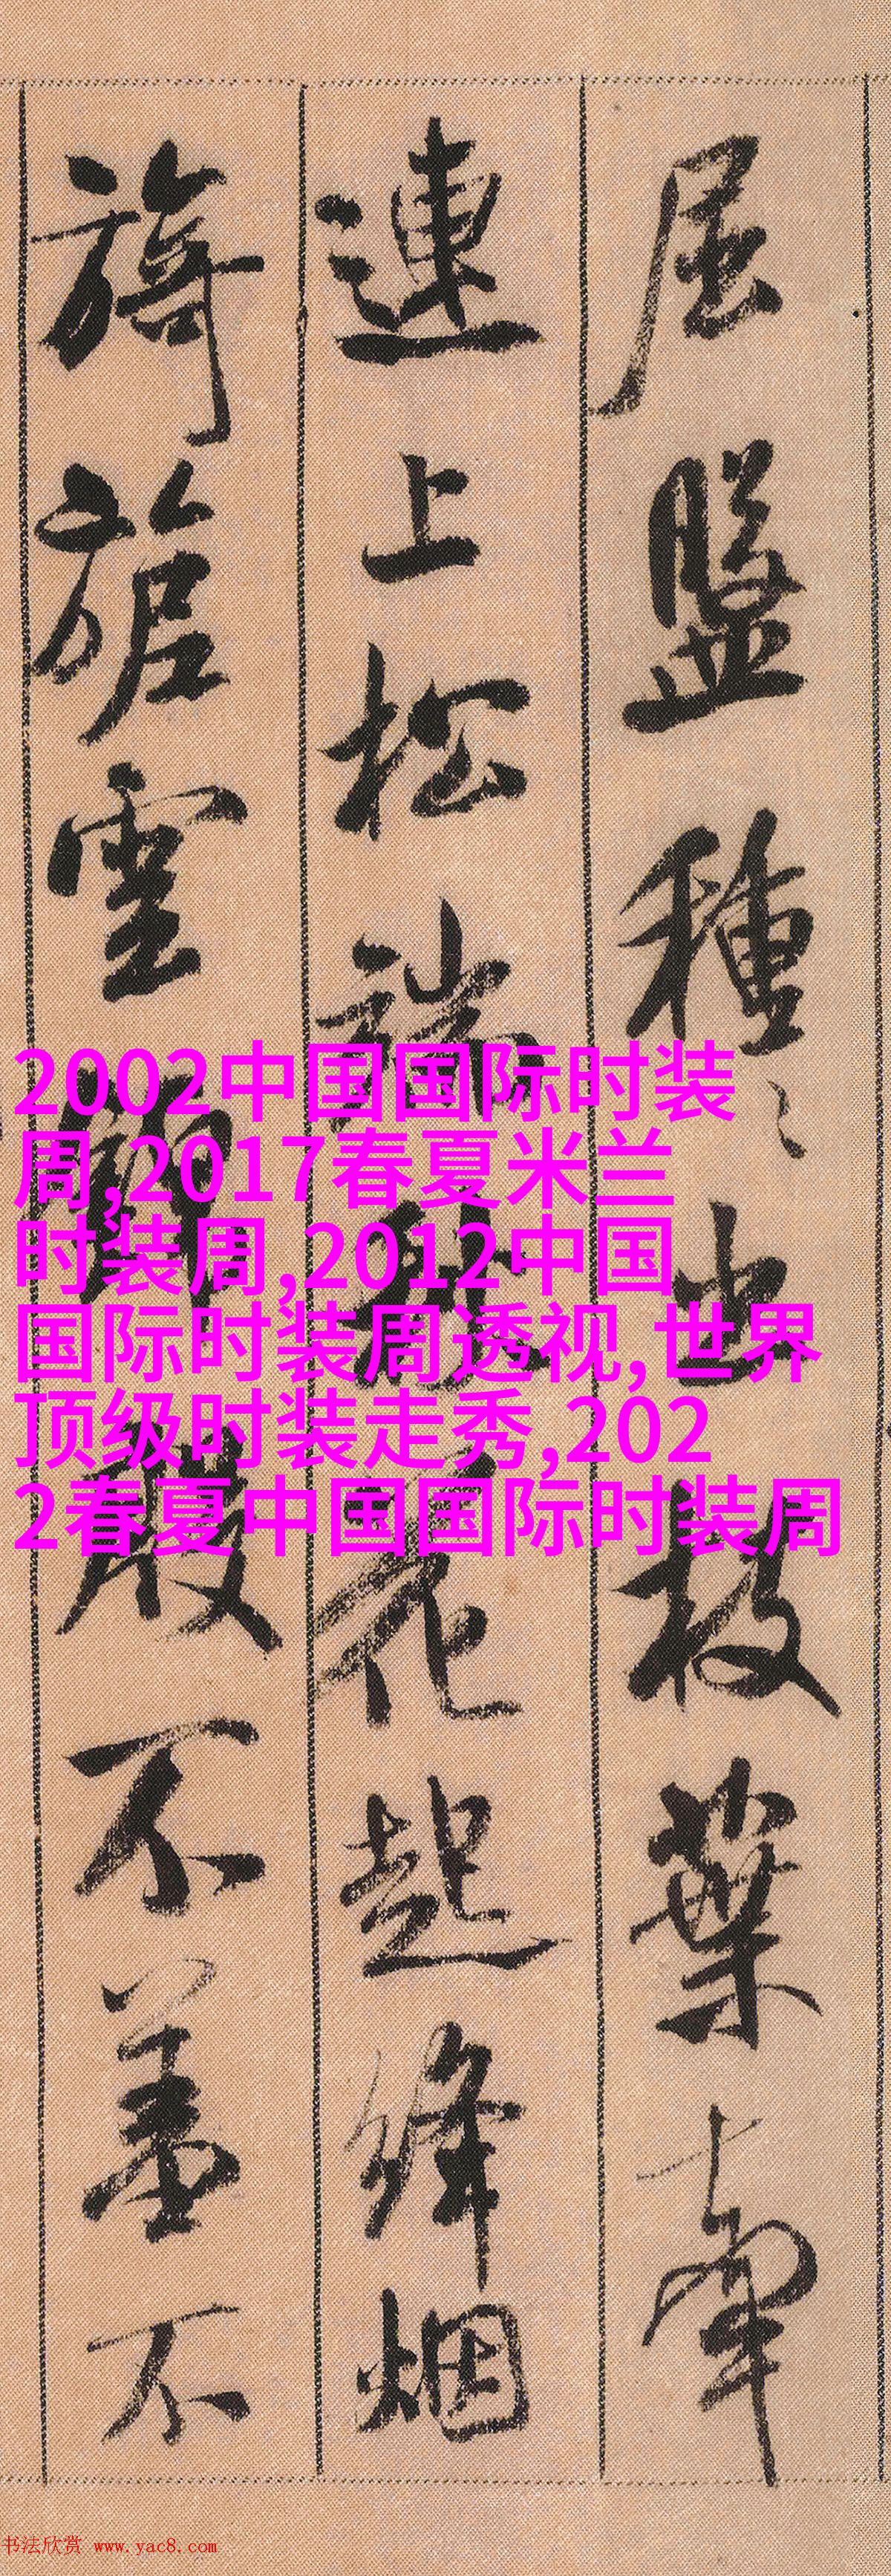 屈盤種〻出枝葉牽
連上松端秋花起絳烟
旖旎雲錦殷不羞不
2002中国国际时装
周,2017春夏米兰
时装周,2012中国
国际时装周透视,世界
顶级时装走秀,202
2春夏中国国际时装周
书法欣赏 www.yac8.com